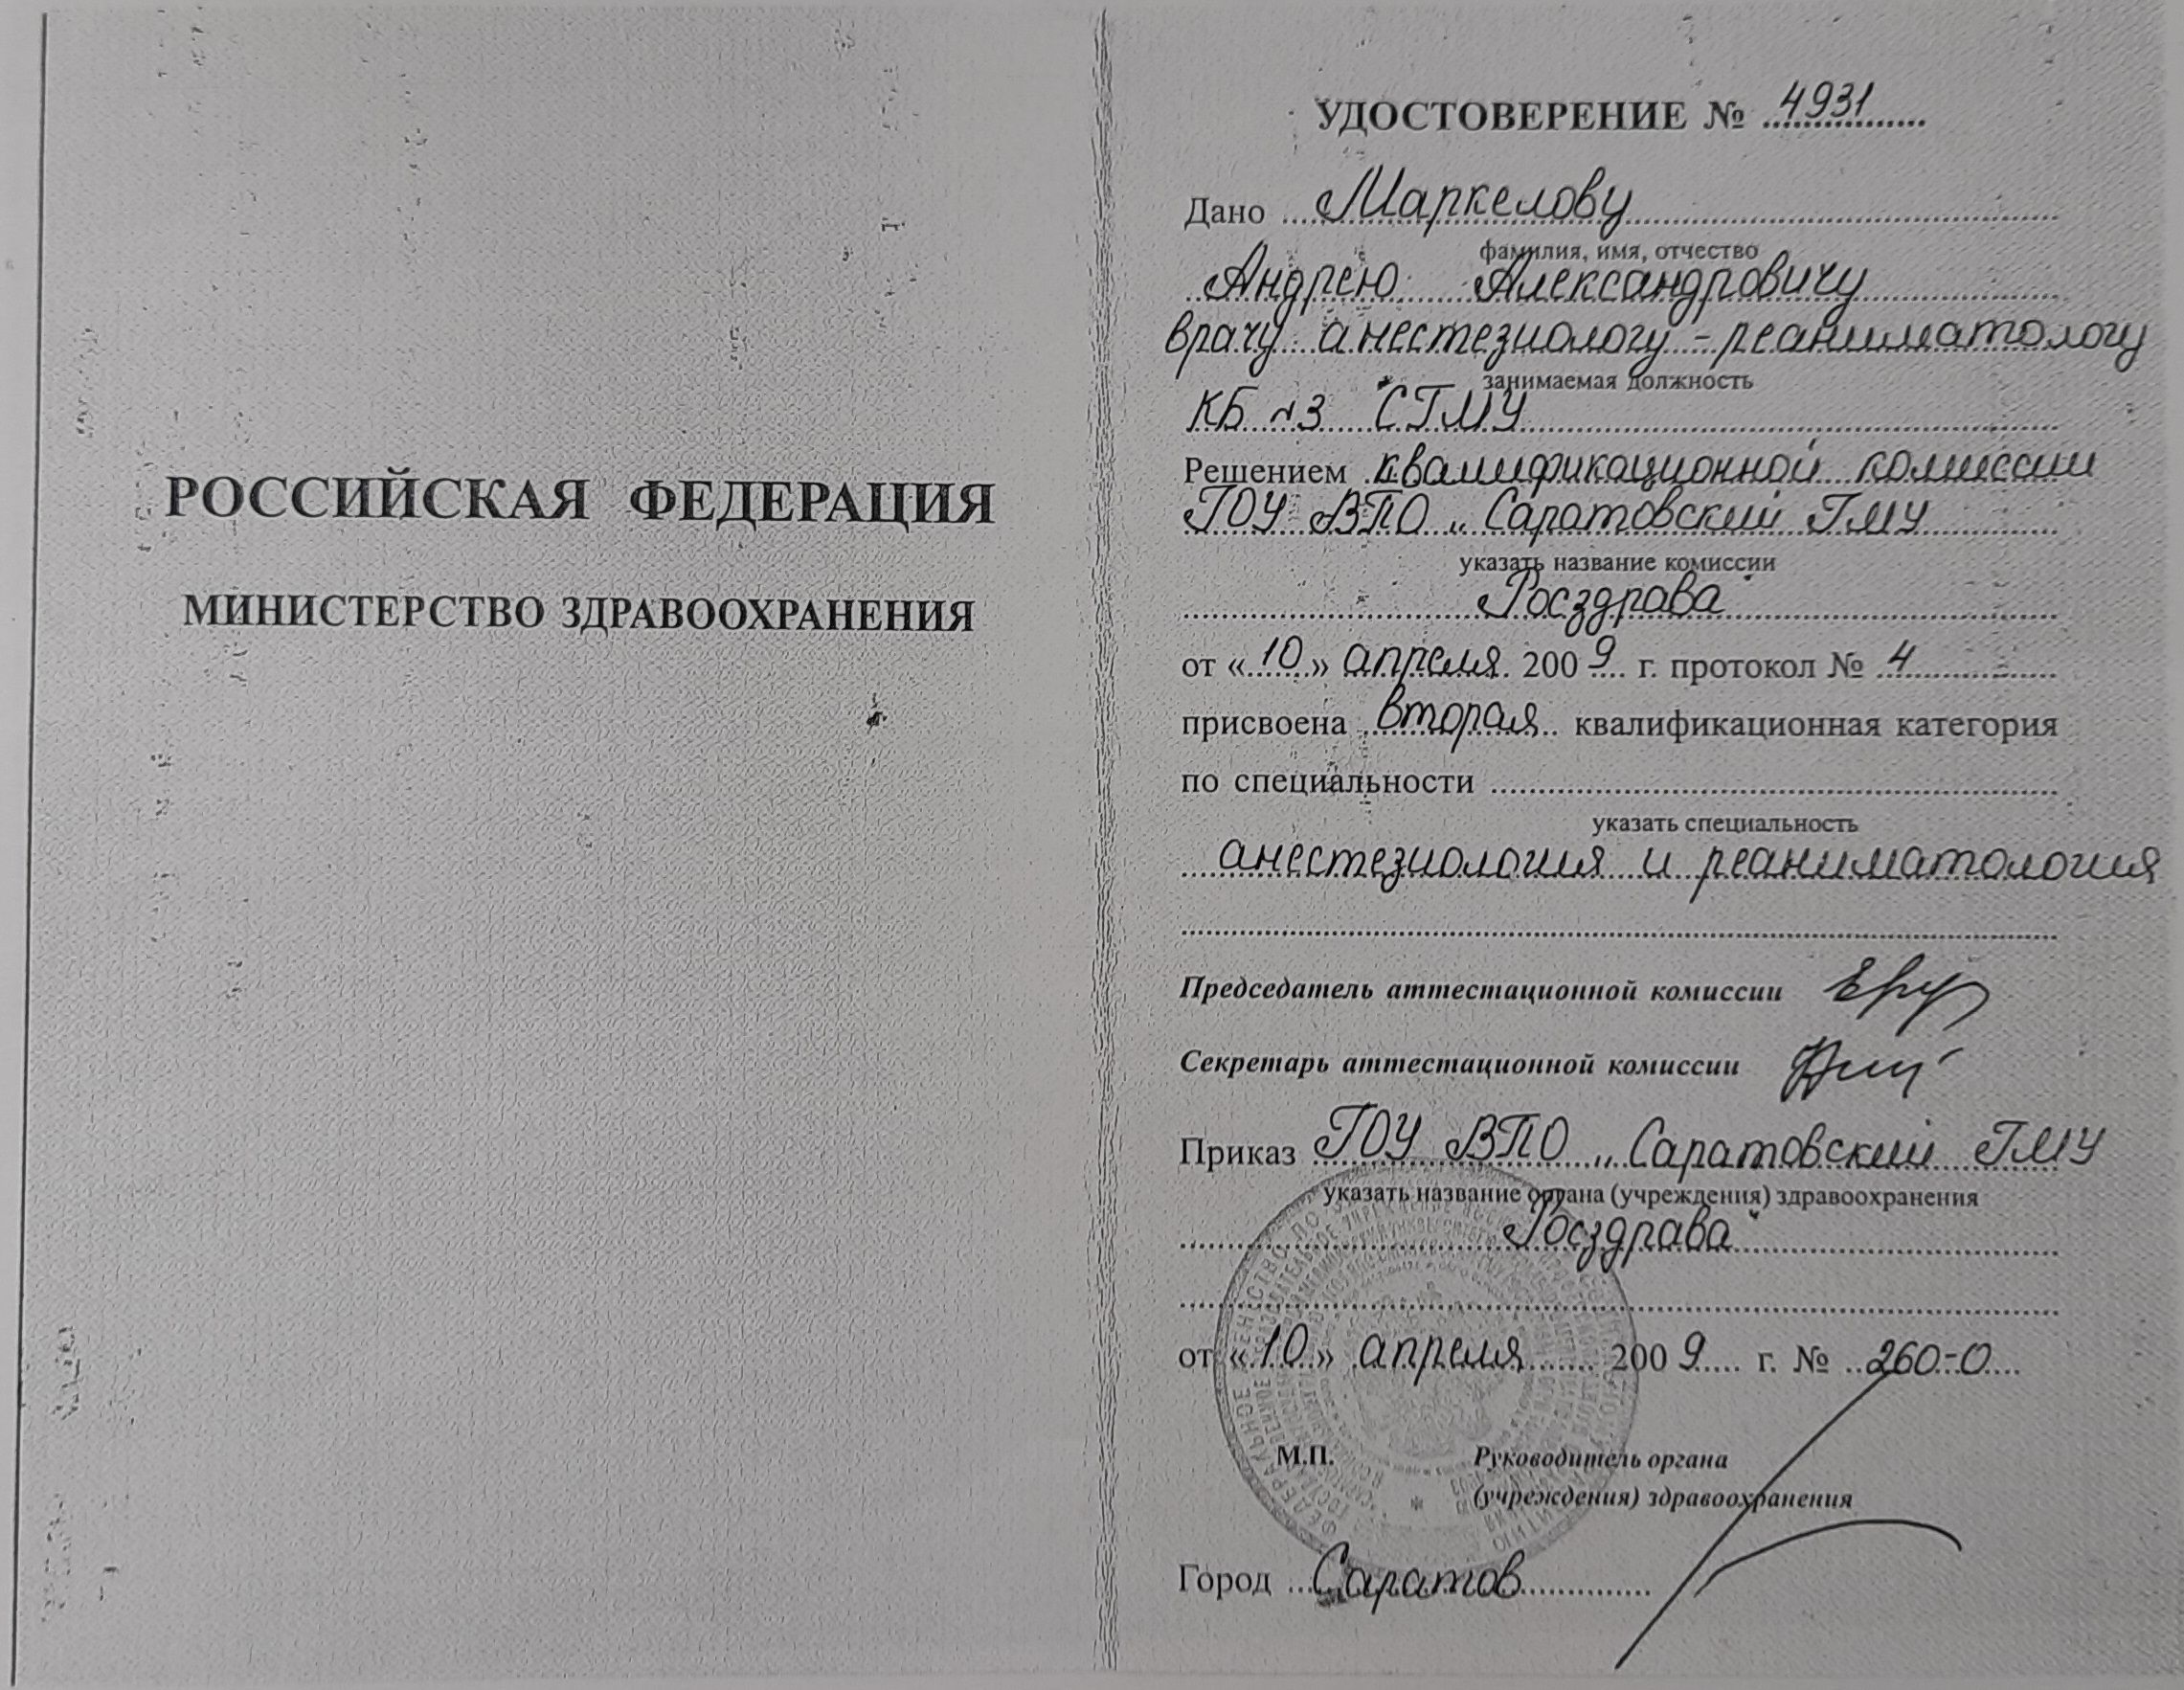 РОССИЙСКАЯ ФЕДЕРАЦИЯ
МИНИСТЕРСТВО ЗДРАВООХРАНЕНИЯ
УДОСТОВЕРЕНИЕ № 4931
Дано Маркелову
фамилия, имя, отчество
Андрею Александровичу
врачу анестезиологу-реаниматологу
занимаемая должность
КБ №3 СГМУ
Решением квалификационной комиссии
ГОУ ВПО „Саратовский ГМУ
указать название комиссии
Росздрава"
от «10» апреля 2009 г. протокол № 4
присвоена вторая квалификационная категория
по специальности
указать специальность
анестезиология и реаниматология
Председатель аттестационной комиссии
Секретарь аттестационной комиссии
Приказ ГОУ ВПО „Саратовский ГМУ
указать название органа (учреждения) здравоохранения
Росздрава"
от «10» апреля 2009 г. № 260-О
М.П. Руководитель органа
(учреждения) здравоохранения
Город Саратов